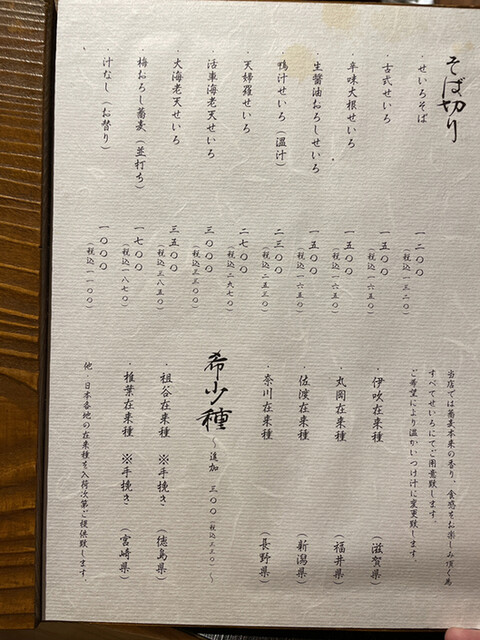 そば切り
・せいろそば 一二〇〇 (税込 一三二〇)
・古式せいろ 一五〇〇 (税込 一六五〇)
・辛味大根せいろ 一五〇〇 (税込 一六五〇)
・生醤油おろしせいろ 一五〇〇 (税込 一六五〇)
・鴨汁せいろ (温汁) 二三〇〇 (税込 二五三〇)
・天婦羅せいろ 二七〇〇 (税込 二九七〇)
・活車海老天せいろ 三〇〇〇 (税込 三三〇〇)
・大海老天せいろ 三五〇〇 (税込 三八五〇)
・梅おろし蕎麦 (並打ち) 一七〇〇 (税込 一八七〇)
・汁なし (お替り) 一〇〇〇 (税込 一一〇〇)
当店では蕎麦本来の香り、食感をお楽しみ頂く為
すべてせいろにてご用意致します。
ご希望により温かいつけ汁に変更致します。
・伊吹在来種 (滋賀県)
・丸岡在来種 (福井県)
・佐渡在来種 (新潟県)
・奈川在来種 (長野県)
希少種 〜追加 三〇〇 (税込 三三〇)〜
・祖谷在来種 ※手挽き (徳島県)
・椎葉在来種 ※手挽き (宮崎県)
他 日本各地の在来種を入荷次第ご提供致します。